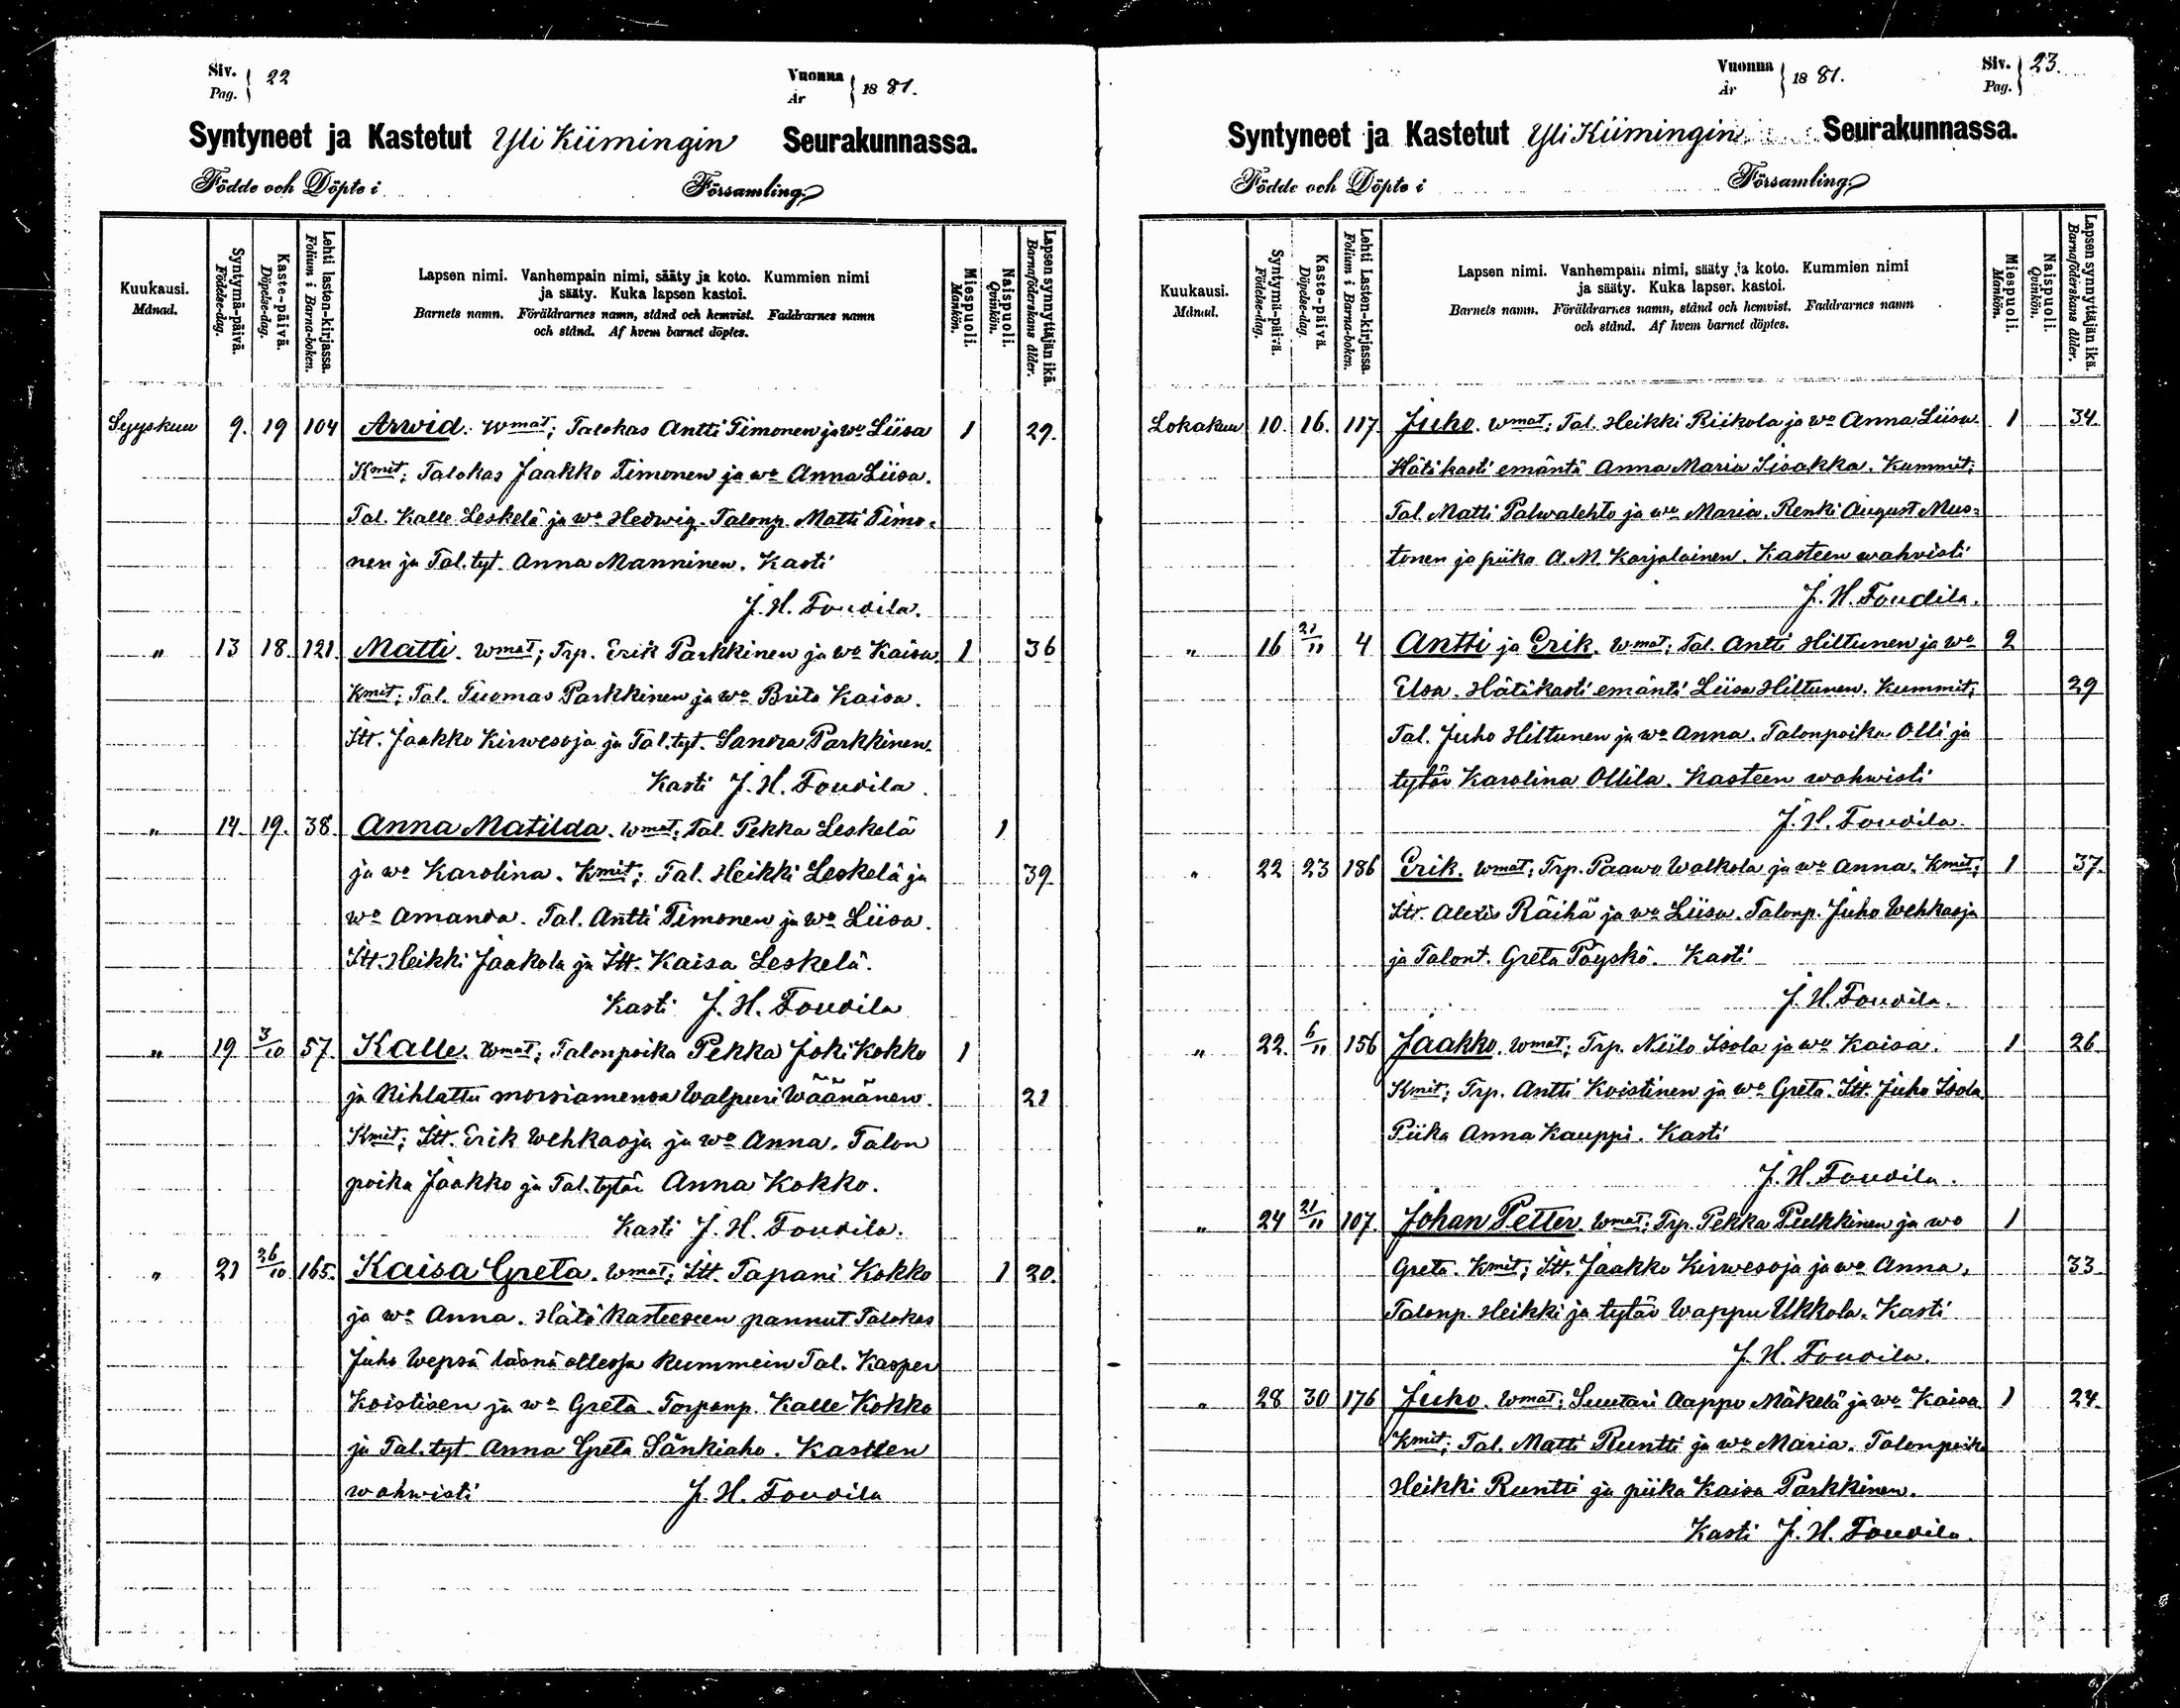 Siv. 22
Pag.
Vuonna 1881.
År
Syntyneet ja Kastetut Yli Kiimingin Seurakunnassa.
Födde och Döpte i Församling.
Kuukausi.
Månad.
Syntymä-päivä.
Födelse-dag.
Kaste-päivä.
Döpelse-dag.
Lehti lasten-kirjassa.
Folium i Barna-boken.
Lapsen nimi. Vanhempain nimi, sääty ja koto. Kummien nimi
ja sääty. Kuka lapsen kastoi.
Barnets namn. Föräldrarnes namn, stånd och hemvist. Faddrarnes namn
och stånd. Af hvem barnet döptes.
Miespuoli.
Mankön.
Naispuoli.
Qvinkön.
Lapsen synnyttäjän ikä.
Barnaföderskans ålder.
Syyskuu 9. 19 104 Arwid. Wmat; Talokas Antti Timonen ja wo Liisa 1 29.
Kmit; Talokas Jaakko Timonen ja wo Anna Liisa.
Tal. Kalle Leskelä ja wo Hedwig. Talonp. Matti Timo-
nen ja Tal. tyt. Anna Manninen. Kasti
J. H. Toudila.
" 13 18. 121. Matti. Wmat; Trp. Erik Parkkinen ja wo Kaisa. 1 36
Kmit; Tal. Tuomas Parkkinen ja wo Brita Kaisa.
Itt. Jaakko Kirwesoja ja Tal. tyt. Sandra Parkkinen.
Kasti J. H. Toudila.
" 14. 19. 38. Anna Matilda. Wmat; Tal. Pekka Leskelä 1
ja wo Karolina. Kmit; Tal. Heikki Leskelä ja 39.
wo Amanda. Tal. Antti Timonen ja wo Liisa.
Itt. Heikki Jaakola ja Itt. Kaisa Leskelä.
Kasti J. H. Toudila
" 19 3/10 57. Kalle. Wmat; Talonpoika Pekka Joki Kokko 1
ja Kihlattu morsiamensa Walpuri Wäänänen. 21
Kmit; Itt. Erik Wehkaoja ja wo Anna. Talon
poika Jaakko ja Tal. tytär Anna Kokko.
Kasti J. H. Toudila.
" 21 26/10 165. Kaisa Greta. Wmat; Itt. Tapani Kokko 1 20.
ja wo Anna. Hätä Kasteeseen pannut Talokas
Juho Wepsä läsnä ollessa Kummein Tal. Kasper
Koistisen ja wo Greta. Torpanp. Kalle Kokko
ja Tal. tyt. Anna Greta Sänkiaho. Kasteen
wahwisti J. H. Toudila
Vuonna 1881. Siv. 23.
År Pag.
Syntyneet ja Kastetut Yli Kiimingin Seurakunnassa.
Födde och Döpte i Församling.
Kuukausi.
Månad.
Syntymä-päivä.
Födelse-dag.
Kaste-päivä.
Döpelse-dag.
Lehti Lasten-kirjassa.
Folium i Barna-boken.
Lapsen nimi. Vanhempain nimi, sääty ja koto. Kummien nimi
ja sääty. Kuka lapsen kastoi.
Barnets namn. Föräldrarnes namn, stånd och hemvist. Faddrarnes namn
och stånd. Af hvem barnet döptes.
Miespuoli.
Mankön.
Naispuoli.
Qvinkön.
Lapsen synnyttäjän ikä.
Barnaföderskans ålder.
Lokakuu 10. 16. 117. Juho. Wmat; Tal. Heikki Riikola ja wo Anna Liisa. 1 34.
Hätikasti emäntä Anna Maria Sisakka. Kummit;
Tal. Matti Palwalehto ja wo Maria. Renki August Mus-
tonen ja piika A. M. Karjalainen. Kasteen wahwisti
J. H. Toudila.
" 16 21/11 4 Antti ja Erik. Wmat; Tal. Antti Hiltunen ja wo 2
Elsa. Hätikasti emäntä Liisa Hiltunen. Kummit; 29
Tal. Juho Hiltunen ja wo Anna. Talonpoika Olli ja
tytär Karolina Ollila. Kasteen wahwisti
J. H. Toudila.
" 22 23 186 Erik. Wmat; Trp. Paawo Walkola ja wo Anna. Kmit; 1 37.
Itt. Alexis Räihä ja wo Liisa. Talonp. Juho Wehkaoja
ja Talont. Greta Pöyskö. Kasti
J. H. Toudila.
" 22. 6/11 156 Jaakko. Wmat; Trp. Niilo Isola ja wo Kaisa. 1 26
Kmit; Trp. Antti Koistinen ja wo Greta. Itt. Juho Isola
Piika Anna Kauppi. Kasti
J. H. Toudila.
" 24 21/11 107. Johan Petter. Wmat; Trp. Pekka Pulkkinen ja wo 1
Greta. Kmit; Itt. Jaakko Kirwesoja ja wo Anna. 33
Talonp. Heikki ja tytär Wappu Ukkola. Kasti
J. H. Toudila.
" 28 30 176 Juho. Wmat; Suutari Aappo Mäkelä ja wo Kaisa 1 24.
Kmit; Tal. Matti Runtti ja wo Maria. Talonpoika
Heikki Runtti ja piika Kaisa Parkkinen.
Kasti J. H. Toudila.